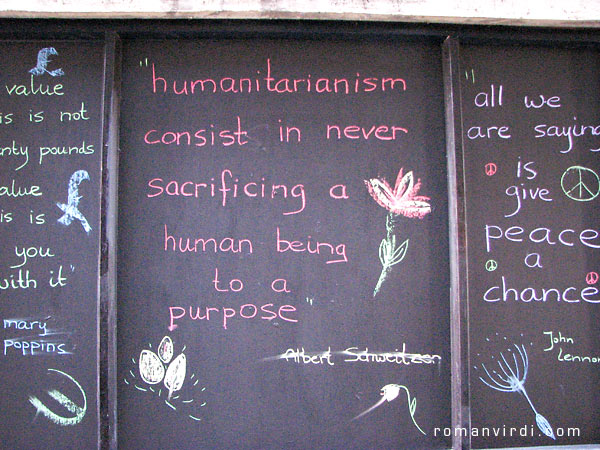 £
value
is is not
nty pounds
value
is is
£
you
with it"
mary
poppins
"humanitarianism
consist in never
sacrificing a
human being
to a
purpose"
Albert Schweitzer
"all we
are saying
is
give
peace
a
chance
John
Lennon
romanvirdi.com